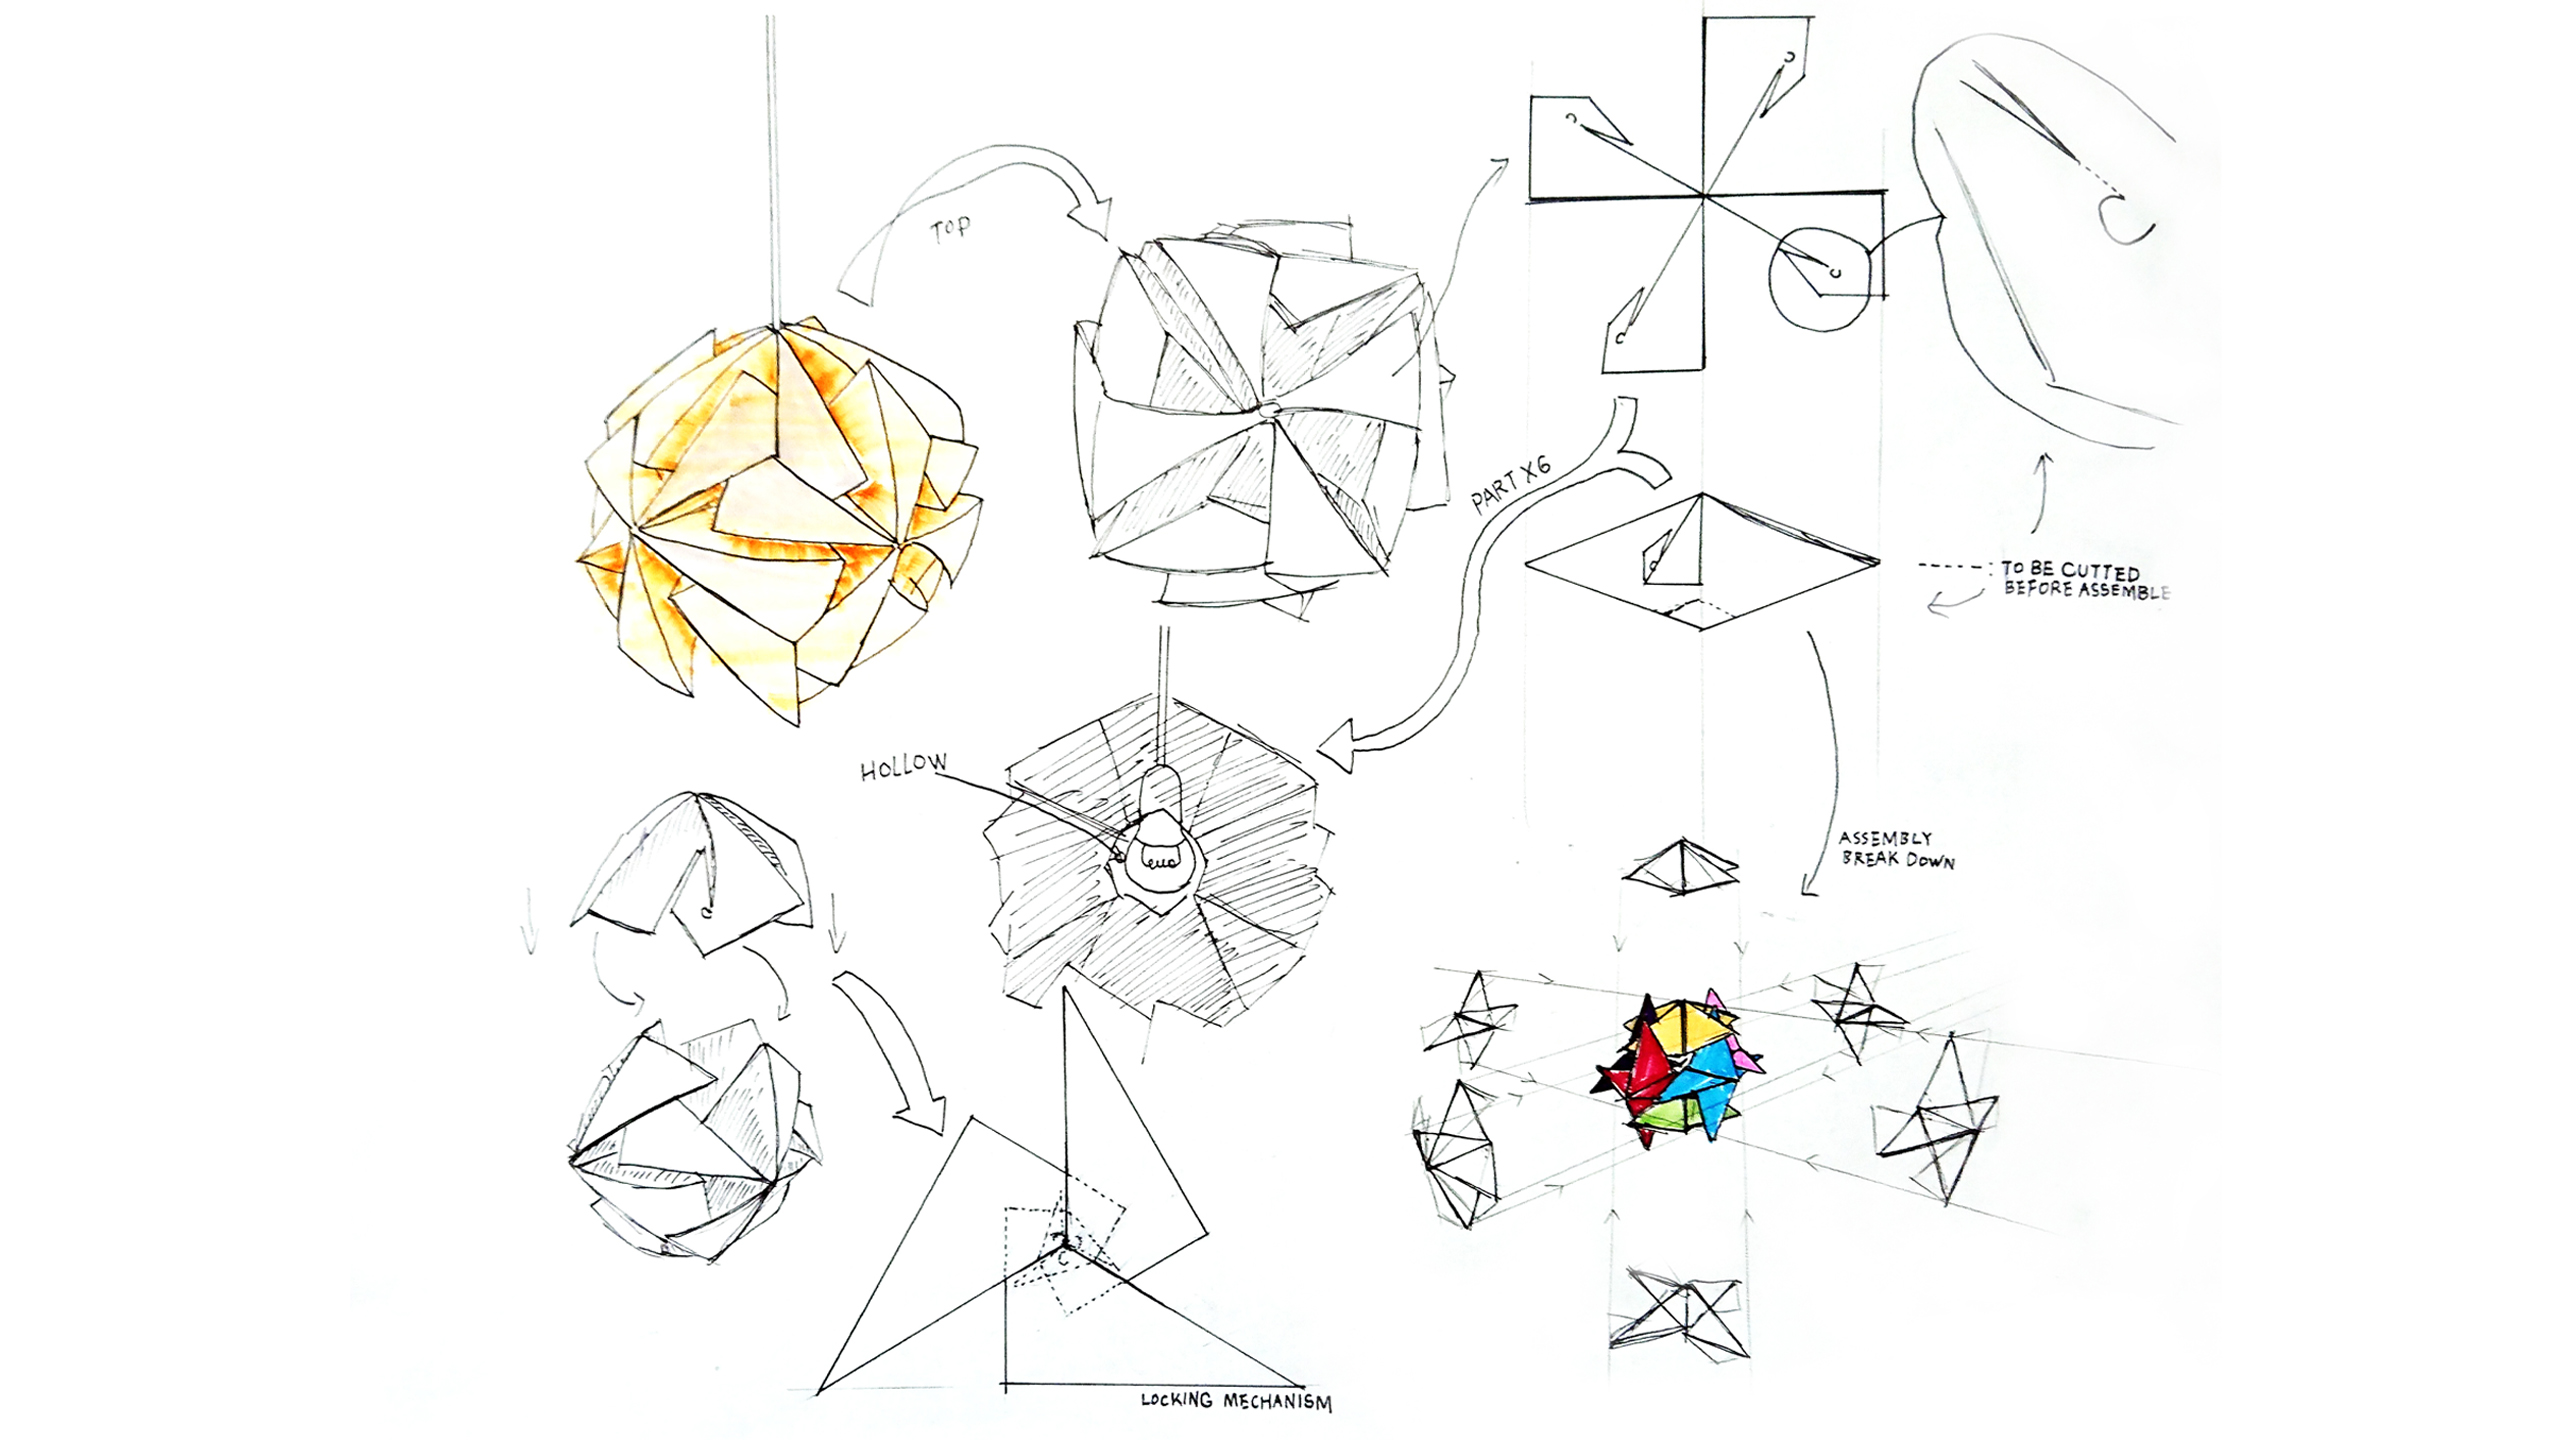 TOP
PART X6
- - - - - : TO BE CUTTED
BEFORE ASSEMBLE
HOLLOW
ASSEMBLY
BREAK DOWN
LOCKING MECHANISM